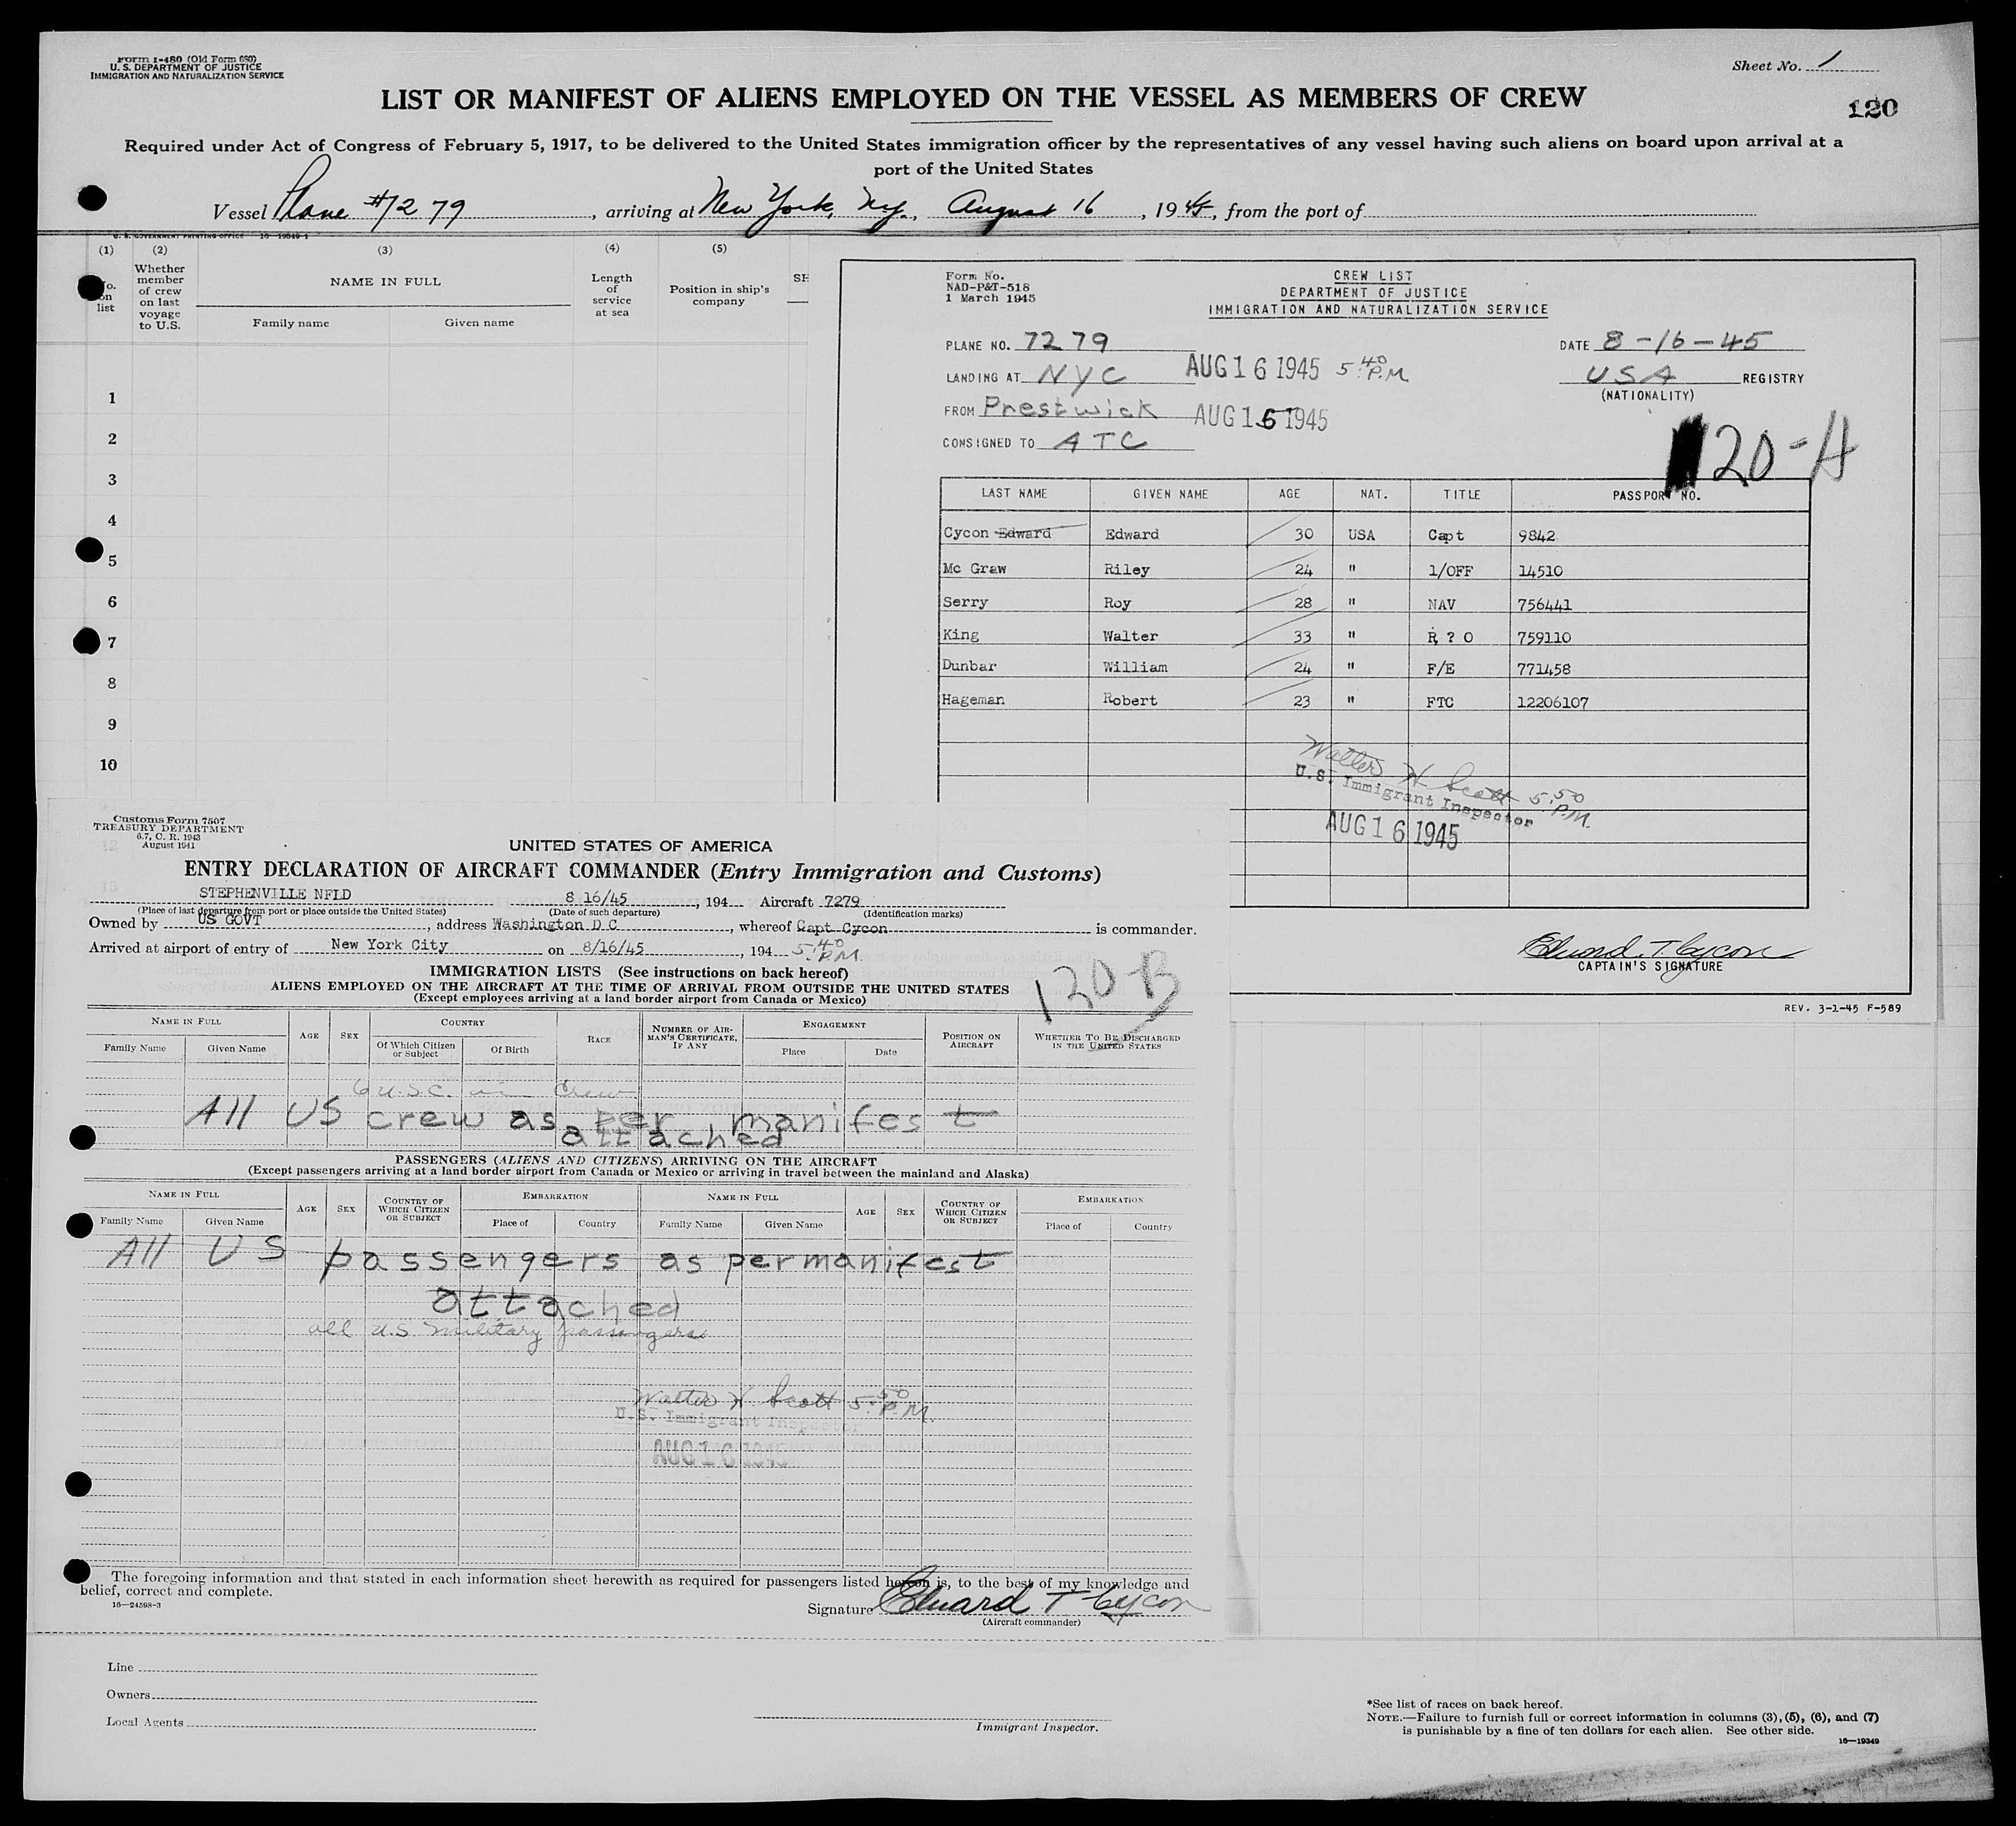 Form I-480 (Old Form 680)
U. S. DEPARTMENT OF JUSTICE
IMMIGRATION AND NATURALIZATION SERVICE
Sheet No. 1
LIST OR MANIFEST OF ALIENS EMPLOYED ON THE VESSEL AS MEMBERS OF CREW
120
Required under Act of Congress of February 5, 1917, to be delivered to the United States immigration officer by the representatives of any vessel having such aliens on board upon arrival at a
port of the United States
Vessel Plane #7279, arriving at New York, N.Y., August 16, 1945, from the port of
U. S. GOVERNMENT PRINTING OFFICE 16—19349-1
(1) (2) (3) (4) (5)
No. on list
Whether member of crew on last voyage to U.S.
NAME IN FULL
Family name Given name
Length of service at sea
Position in ship's company
SH
1
2
3
4
5
6
7
8
9
10
12
13
Form No.
NAD-P&T-518
1 March 1945
CREW LIST
DEPARTMENT OF JUSTICE
IMMIGRATION AND NATURALIZATION SERVICE
PLANE NO. 7279 DATE 8-16-45
LANDING AT NYC AUG 16 1945 5:40 P.M. USA REGISTRY
(NATIONALITY)
FROM Prestwick AUG 16 1945
CONSIGNED TO ATC
120-A
LAST NAME GIVEN NAME AGE NAT. TITLE PASSPORT NO.
Cycon Edward Edward 30 USA Capt 9842
Mc Graw Riley 24 " 1/OFF 14510
Serry Roy 28 " NAV 756441
King Walter 33 " R ? O 759110
Dunbar William 24 " F/E 771458
Hageman Robert 23 " FTC 12206107
Walter H Scott 5:50 P.M.
U.S. Immigrant Inspector
AUG 16 1945
Edward T. Cycon
CAPTAIN'S SIGNATURE
REV. 3-1-45 F-589
Customs Form 7507
TREASURY DEPARTMENT
6.7, C. R. 1943
August 1941
UNITED STATES OF AMERICA
ENTRY DECLARATION OF AIRCRAFT COMMANDER (Entry Immigration and Customs)
STEPHENVILLE NFLD 8 16/45, 194 Aircraft 7279
(Place of last departure from port or place outside the United States) (Date of such departure) (Identification marks)
Owned by US GOVT, address Washington D C, whereof Capt Cycon is commander.
Arrived at airport of entry of New York City on 8/16/45, 194 5:40 P.M.
IMMIGRATION LISTS (See instructions on back hereof)
120-B
ALIENS EMPLOYED ON THE AIRCRAFT AT THE TIME OF ARRIVAL FROM OUTSIDE THE UNITED STATES
(Except employees arriving at a land border airport from Canada or Mexico)
NAME IN FULL AGE SEX COUNTRY RACE NUMBER OF AIRMAN'S CERTIFICATE, IF ANY ENGAGEMENT POSITION ON AIRCRAFT WHETHER TO BE DISCHARGED IN THE UNITED STATES
Family Name Given Name Of Which Citizen or Subject Of Birth Place Date
6 U.S.C. in Crew
All US crew as per manifest
attached
PASSENGERS (ALIENS AND CITIZENS) ARRIVING ON THE AIRCRAFT
(Except passengers arriving at a land border airport from Canada or Mexico or arriving in travel between the mainland and Alaska)
NAME IN FULL AGE SEX COUNTRY OF WHICH CITIZEN OR SUBJECT EMBARKATION NAME IN FULL AGE SEX COUNTRY OF WHICH CITIZEN OR SUBJECT EMBARKATION
Family Name Given Name Place of Country Family Name Given Name Place of Country
All US passengers as per manifest
attached
all U.S. military passengers
Walter H Scott 5:50 P.M.
U.S. Immigrant Inspector
AUG 16 1945
The foregoing information and that stated in each information sheet herewith as required for passengers listed hereon is, to the best of my knowledge and
belief, correct and complete.
16—24598-3
Signature Edward T Cycon
(Aircraft commander)
Line
Owners
Local Agents
Immigrant Inspector.
*See list of races on back hereof.
NOTE.—Failure to furnish full or correct information in columns (3), (5), (6), and (7)
is punishable by a fine of ten dollars for each alien. See other side.
16—19349